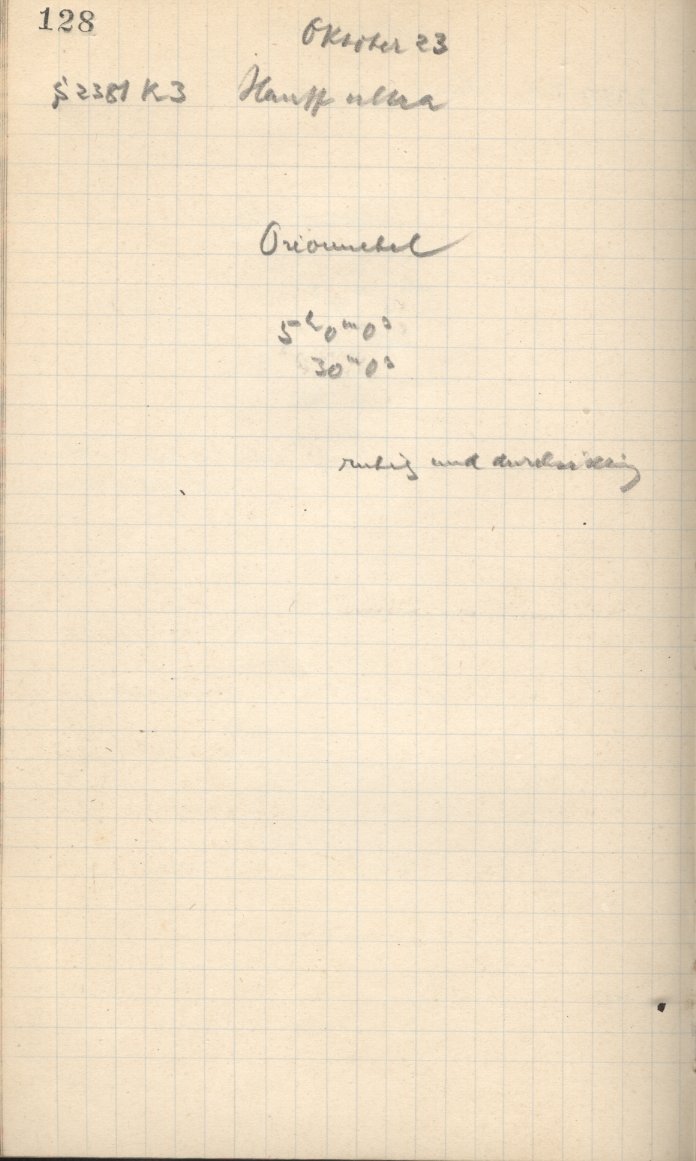 128
Oktober 23
§ 2381 K 3 Hauff ultra
Orionnebel
5ʰ0ᵐ0ˢ
30ᵐ0ˢ
ruhig und durchsichtig